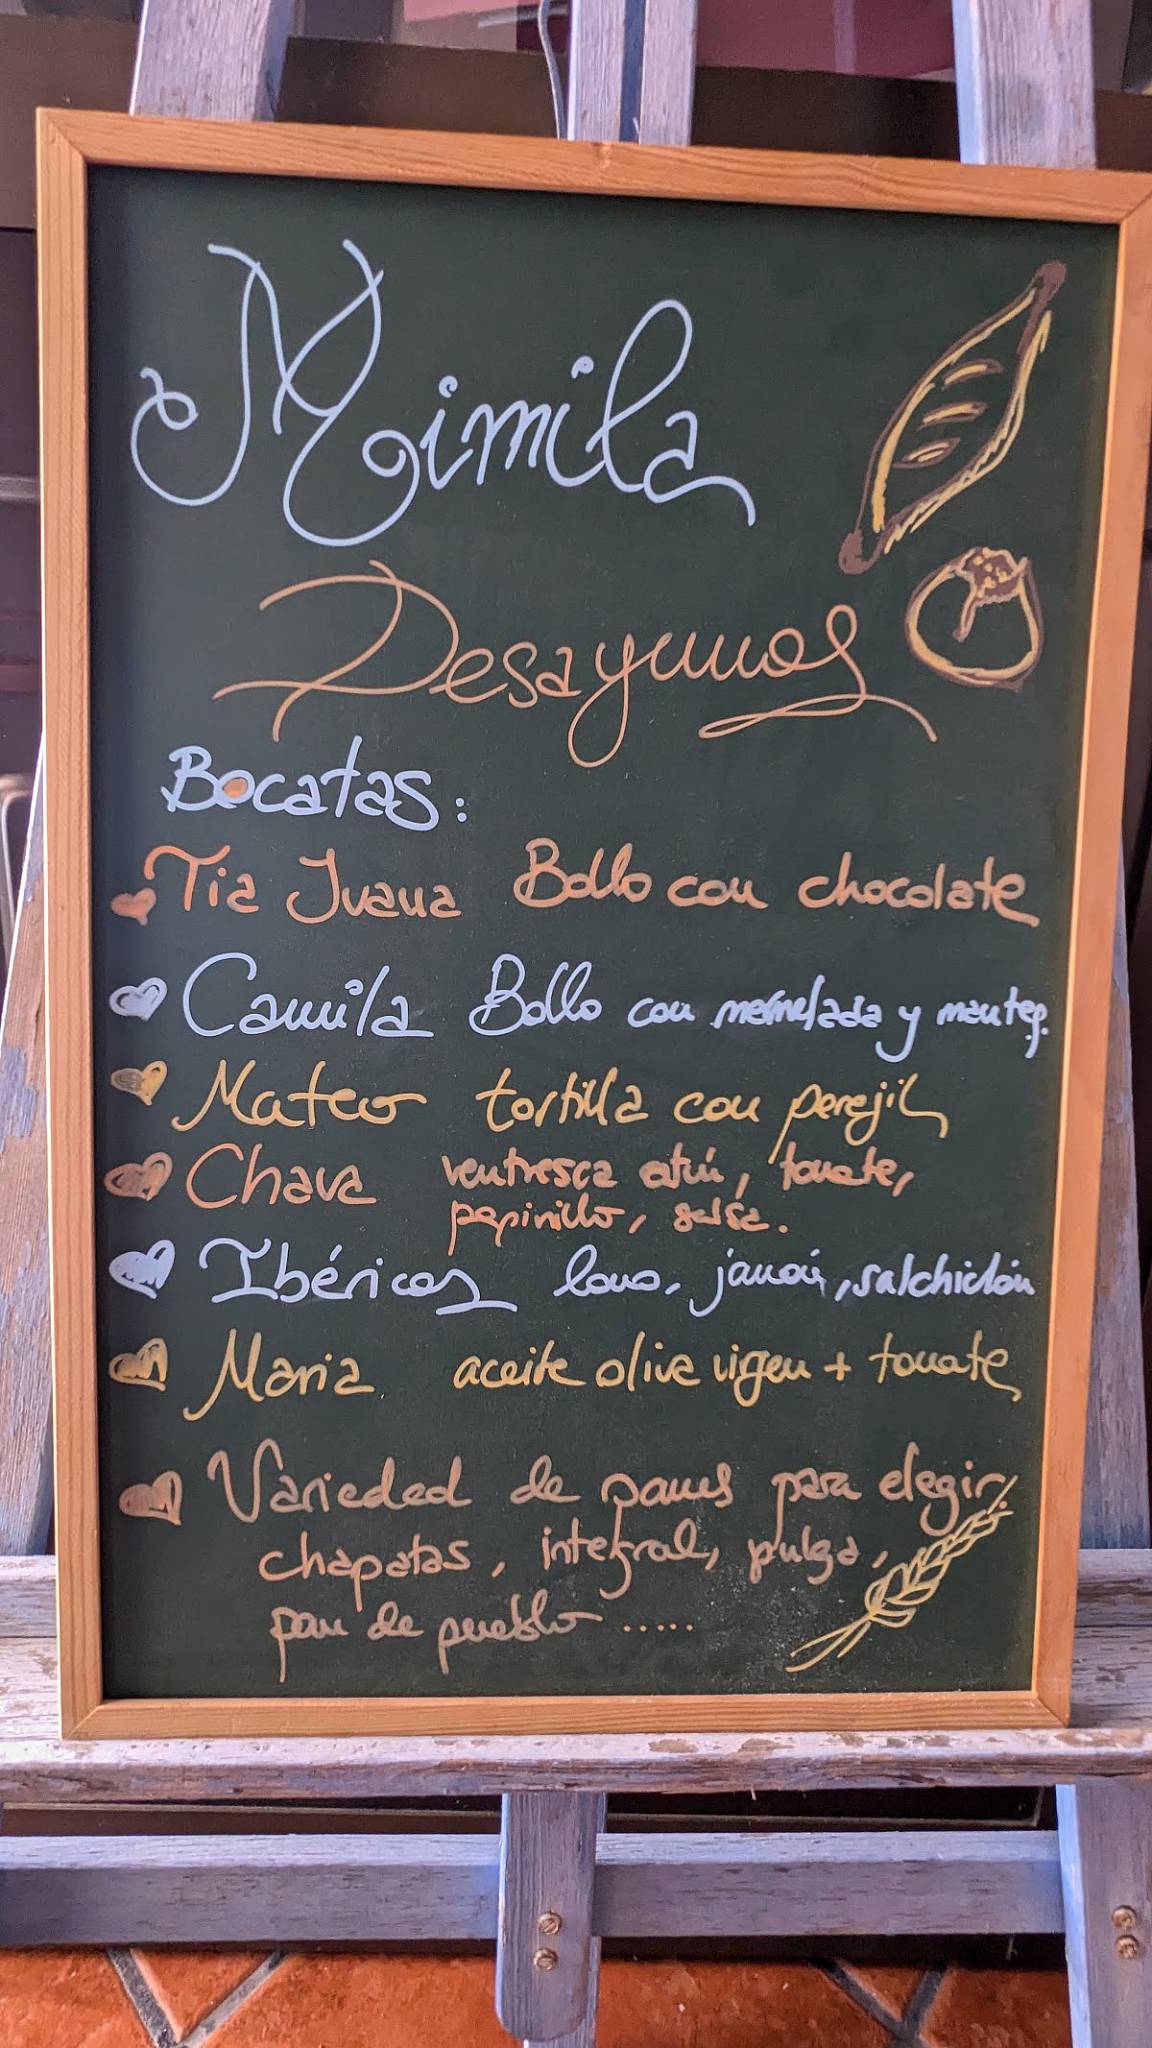 Mimila
Desayunos
Bocatas:
Tia Juana Bollo con chocolate
Camila Bollo con mermelada y manteq.
Mateo tortilla con perejil
Chava ventresca atún, tomate,
pepinillo, salsa.
Ibéricos lomo, jamón, salchichón
Maria aceite oliva virgen + tomate
Variedad de panes para elegir:
chapatas, integral, pulga,
pan de pueblo .....